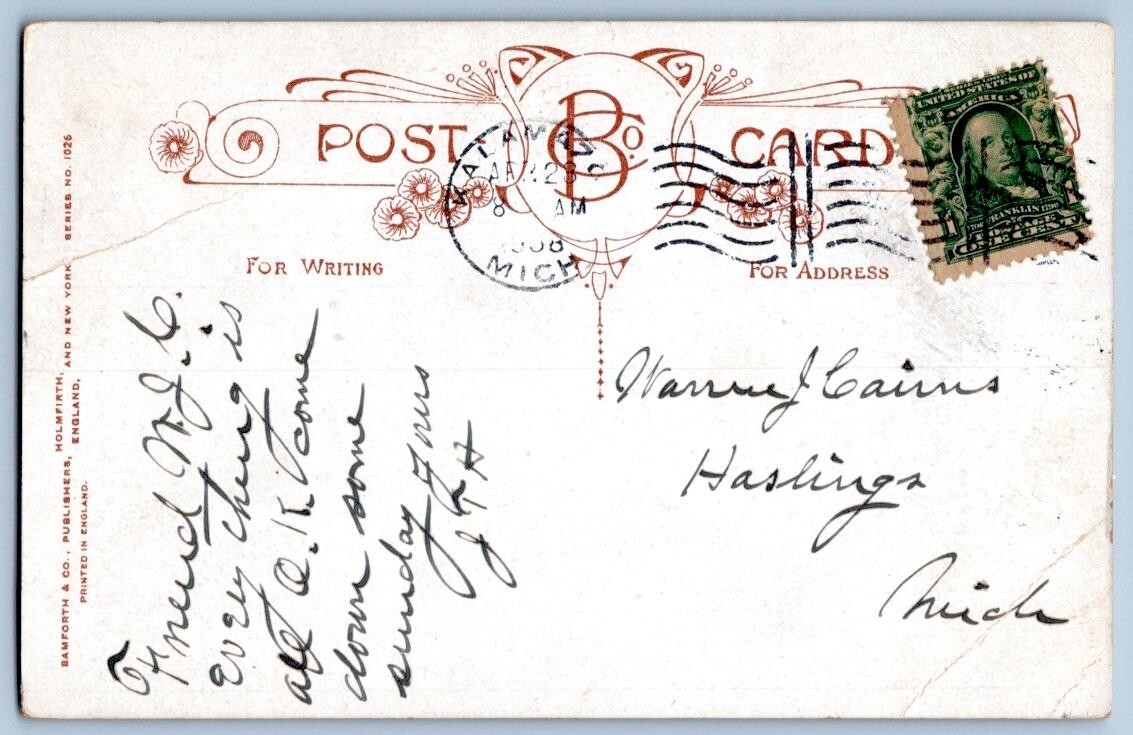 POST CARD
B Co.
KALAMAZOO
APR 23
8 AM
1908
MICH
UNITED STATES OF
AMERICA
FRANKLIN
1 1
ONE CENT
FOR WRITING
FOR ADDRESS
Friend W.J.C.
Every thing is
all O.K. come
down some
sunday Yours
J F H
Warren J Cairns
Hastings
Mich
BAMFORTH & CO., PUBLISHERS, HOLMFIRTH, ENGLAND, AND NEW YORK. SERIES NO. 1026
PRINTED IN ENGLAND.